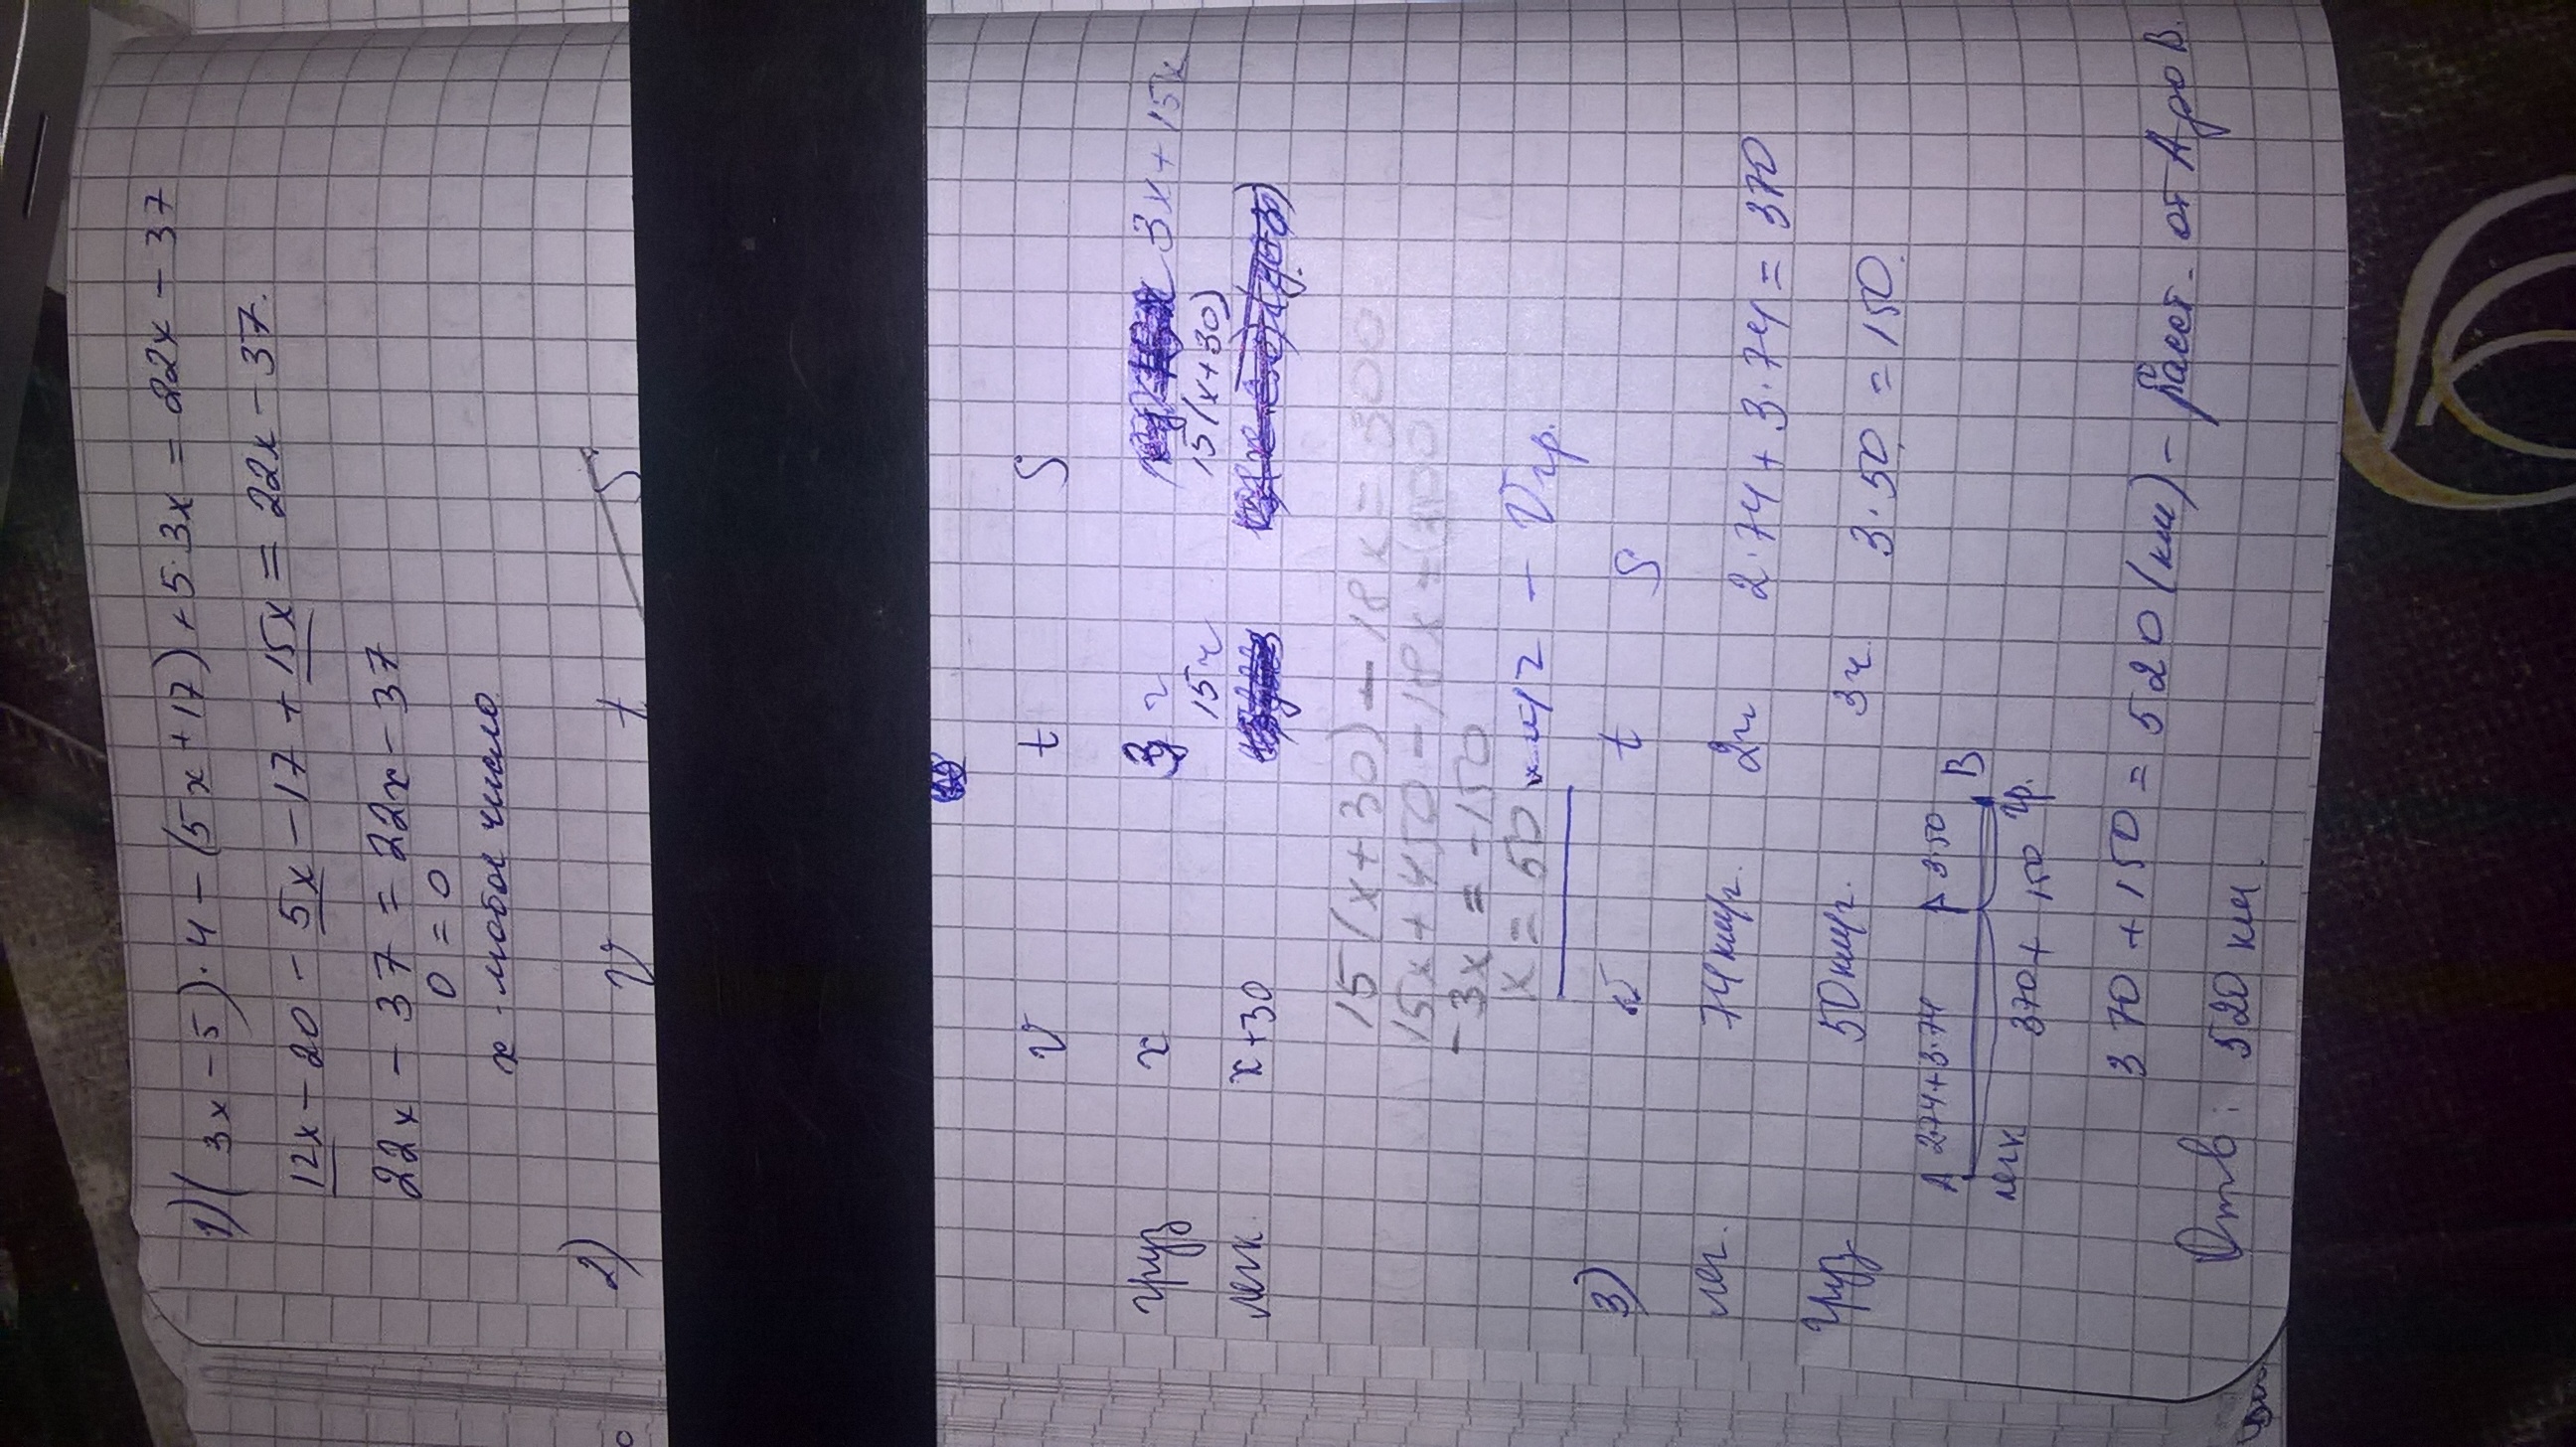 1) (3x - 5) · 4 - (5x + 17) + 5 · 3x = 22x - 37
12x - 20 - 5x - 17 + 15x = 22x - 37.
22x - 37 = 22x - 37
0 = 0
x - любое число
2) V t S
V t S
груз x 3 ч 3x + 15x
15 ч 15(x+30)
легк. x+30
15(x+30) - 18x = 300
15x + 450 - 18x = 300
-3x = -150
x = 50 км/ч - Vгр.
3) V t S
лег. 74 км/ч. 2ч 2·74 + 3·74 = 370
груз 50 км/ч. 3ч. 3·50 = 150.
A 2·74+3·74 3·50 B
легк 370 + 150 гр.
370 + 150 = 520 (км) - расст. от A до B.
Ответ: 520 км.